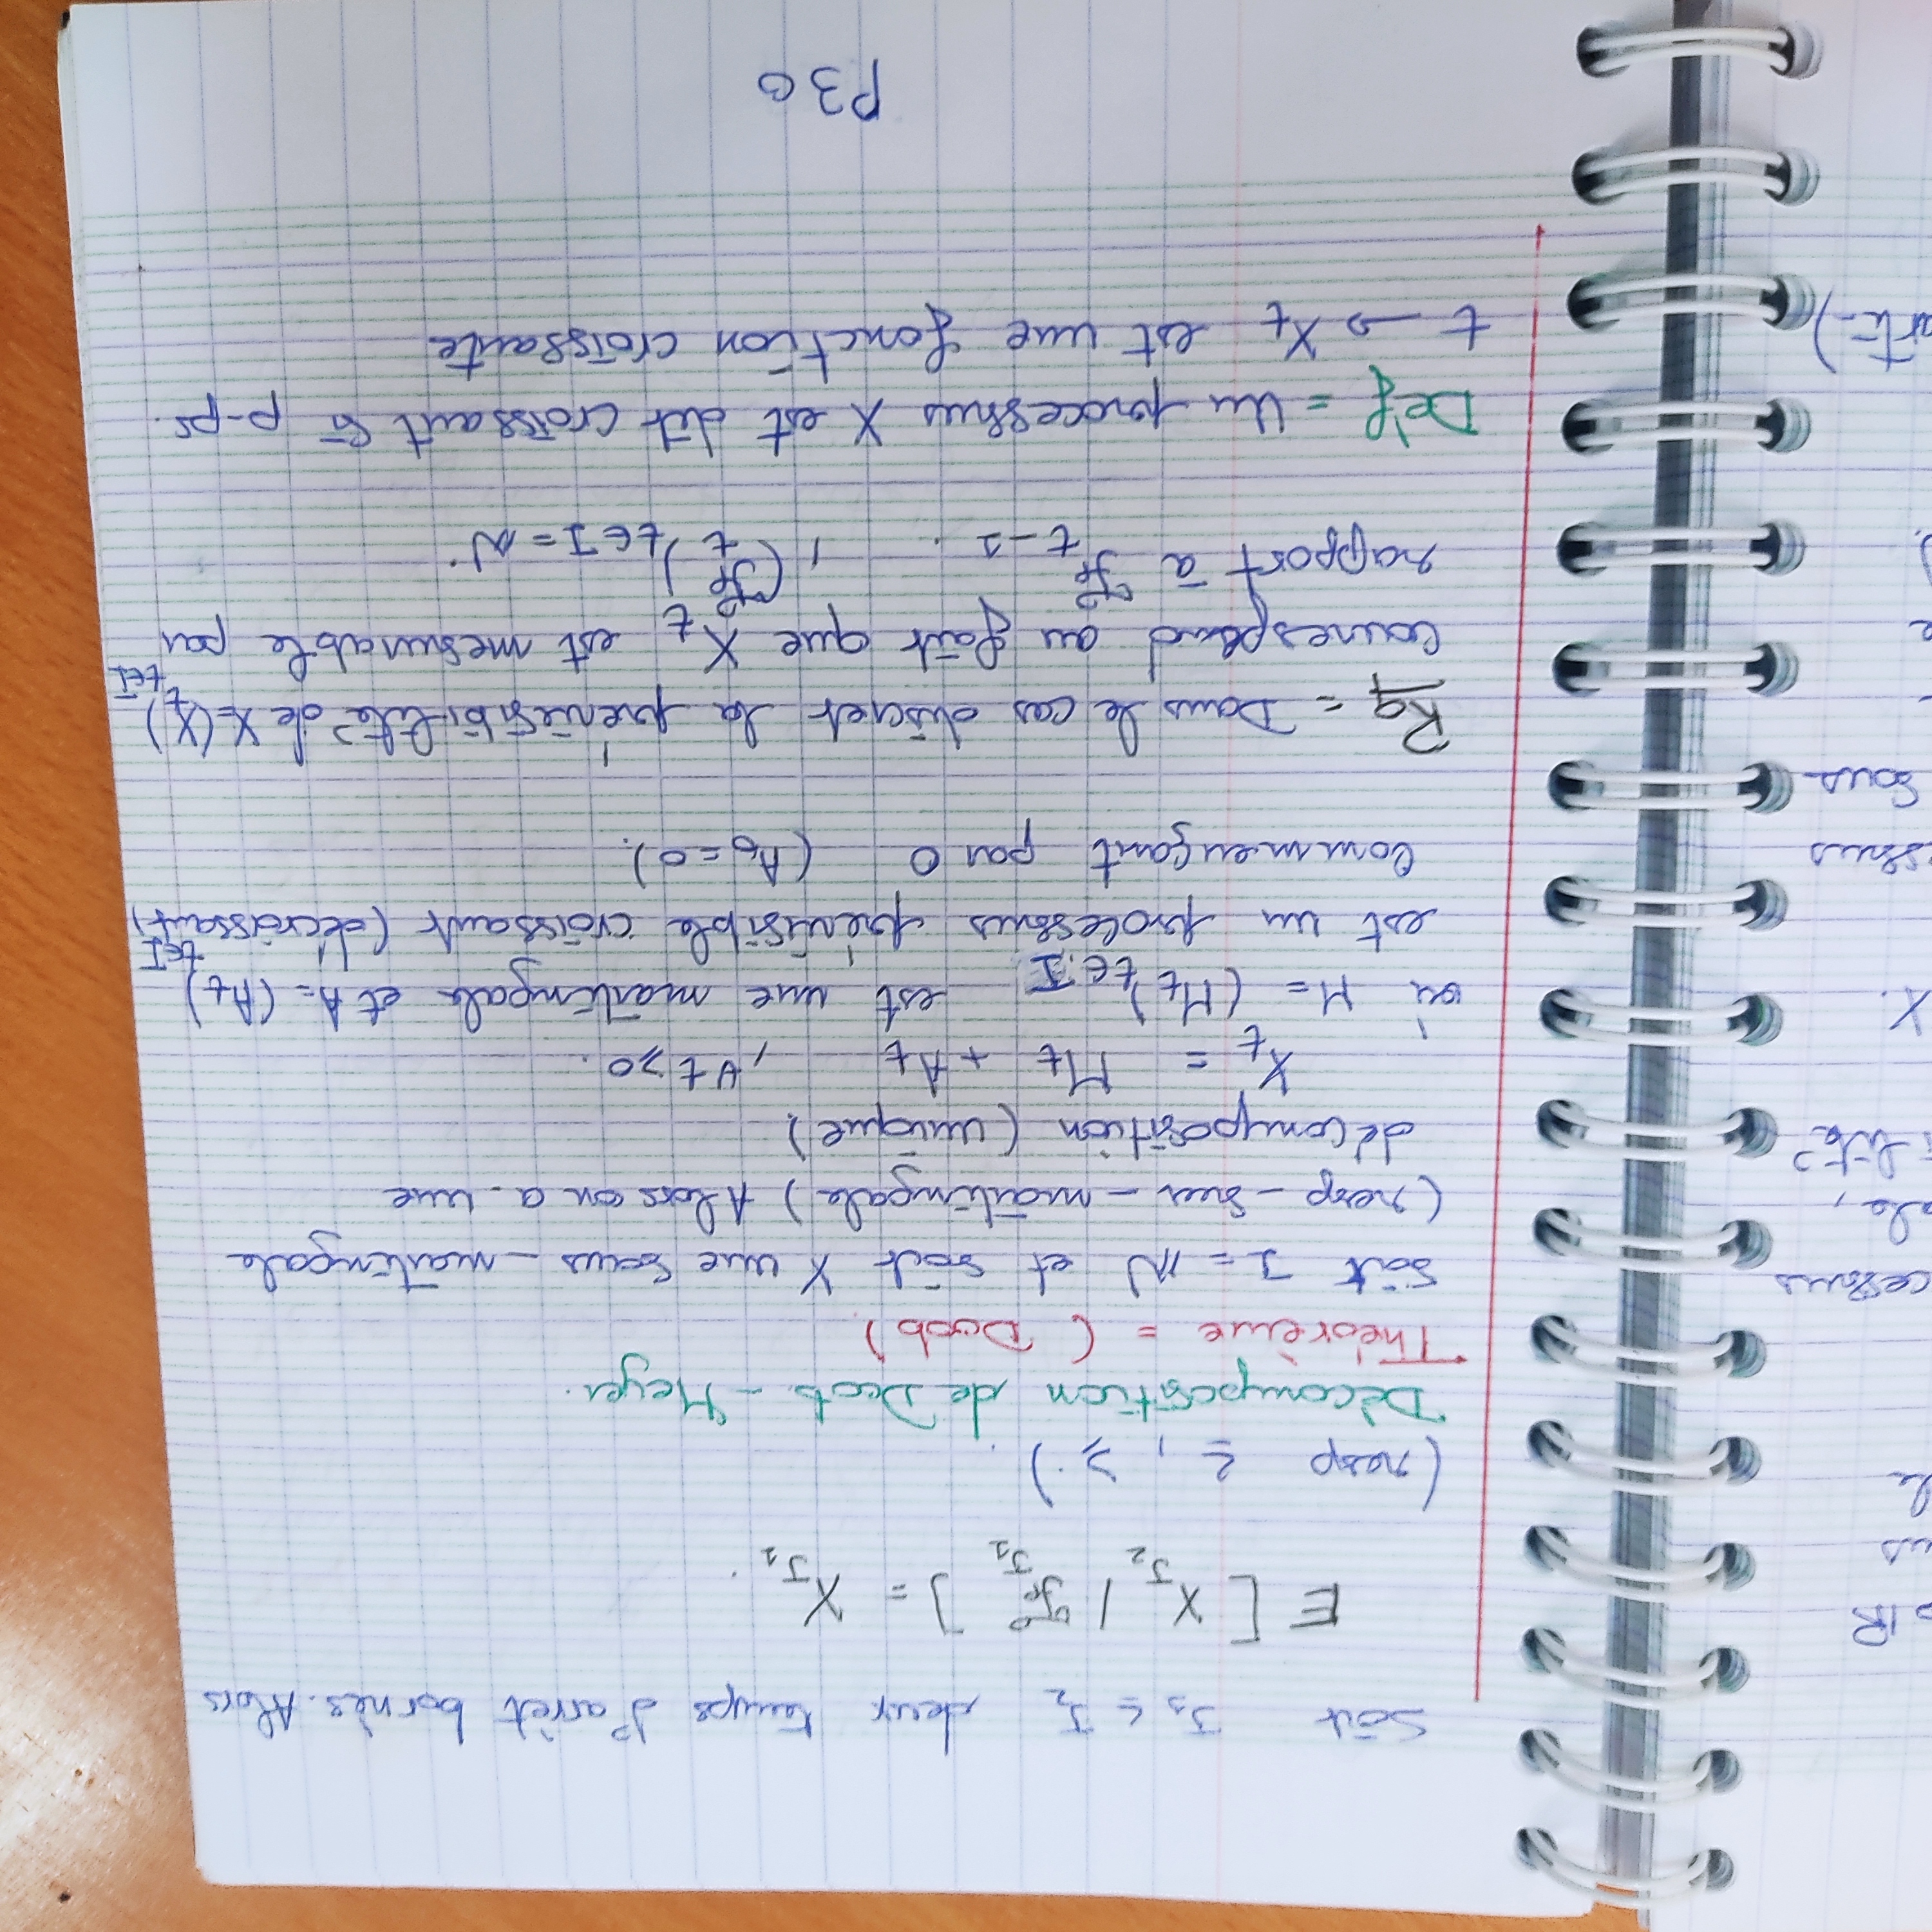 Soit J₁ ≤ J₂ deux temps d'arrêt bornès. Alors
E [ X_{J₂} / ℱ_{J₁} ] = X_{J₁}.
(resp ≤, ≥.).
Dècomposition de Doob - Meyer.
Théorème = (Doob)
Soit I = ℕ et soit X une sous-martingale
(resp-sur-martingale) Alors on a une
décomposition (unique)
X_t = M_t + A_t , ∀t ≥ 0.
où M = (M_t)_{t∈I} est une martingale et A = (A_t)_{t∈I}
est un processus prévisible croissant (décroissant)
Commençant par 0 (A₀ = 0).
Rq = Dans le cas discret la prévisibilité de X = (X_t)_{t∈I}
correspond au fait que X_t est mesurable par
rapport à ℱ_{t-1}. , (ℱ_t)_{t∈I=ℕ}.
Déf = Un processus X est dit croissant si p-ps.
t → X_t est une fonction croissante
P30
o IR
us
le
cessus
ale,
lité
X.
essus
Sous-
e
).
arti-)